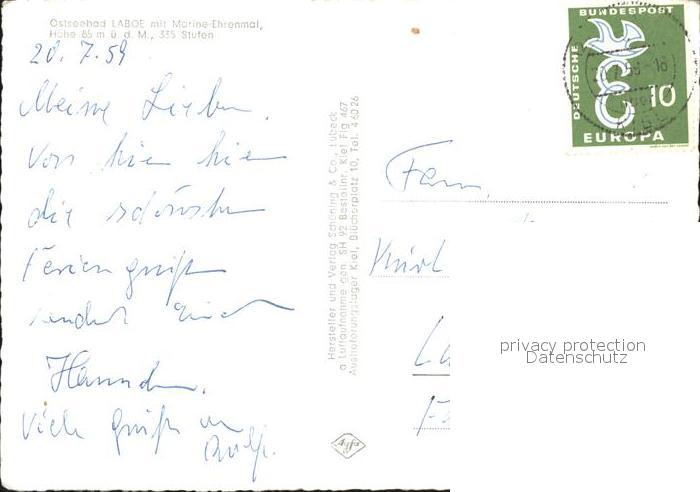 Ostseebad LABOE mit Marine-Ehrenmal,
Höhe 85 m ü. d. M., 335 Stufen
20. 7. 59
Meine Lieben.
Von hier
die schönsten
Feriengrüße
sendet Euch
Viele Grüße an
Fam.
Kurl
Hersteller und Verlag Schöning & Co., Lübeck
Luftaufnahme gen. SH 92 Bestellnr. Kiel Flg 467
Auslieferungslager Kiel, Blücherplatz 10, Tel. 46026
Agfa
DEUTSCHE
BUNDESPOST
10
EUROPA
privacy protection
Datenschutz